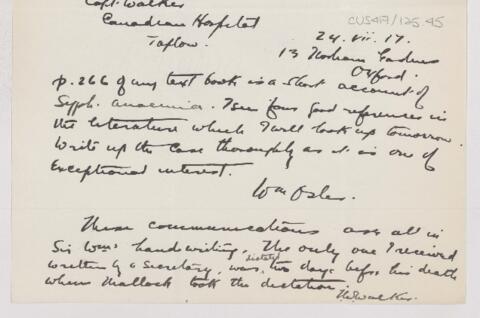 Capt. Walker
Canadian Hospital
Taplow.
CUS417/125.45
24. vii. 17.
13 Norham Gardens
Oxford.
p. 266 of my text book is a short account of
Syph. anaemia. I see four good references in
the literature which I will look up tomorrow.
Write up the case thoroughly as it is one of
exceptional interest.
Wm Osler.
These communications are all in
Sir Wm's handwriting. The only one I received
written by a secretary, was dictated two days before his death
when Mallock took the dictation.
Walker.